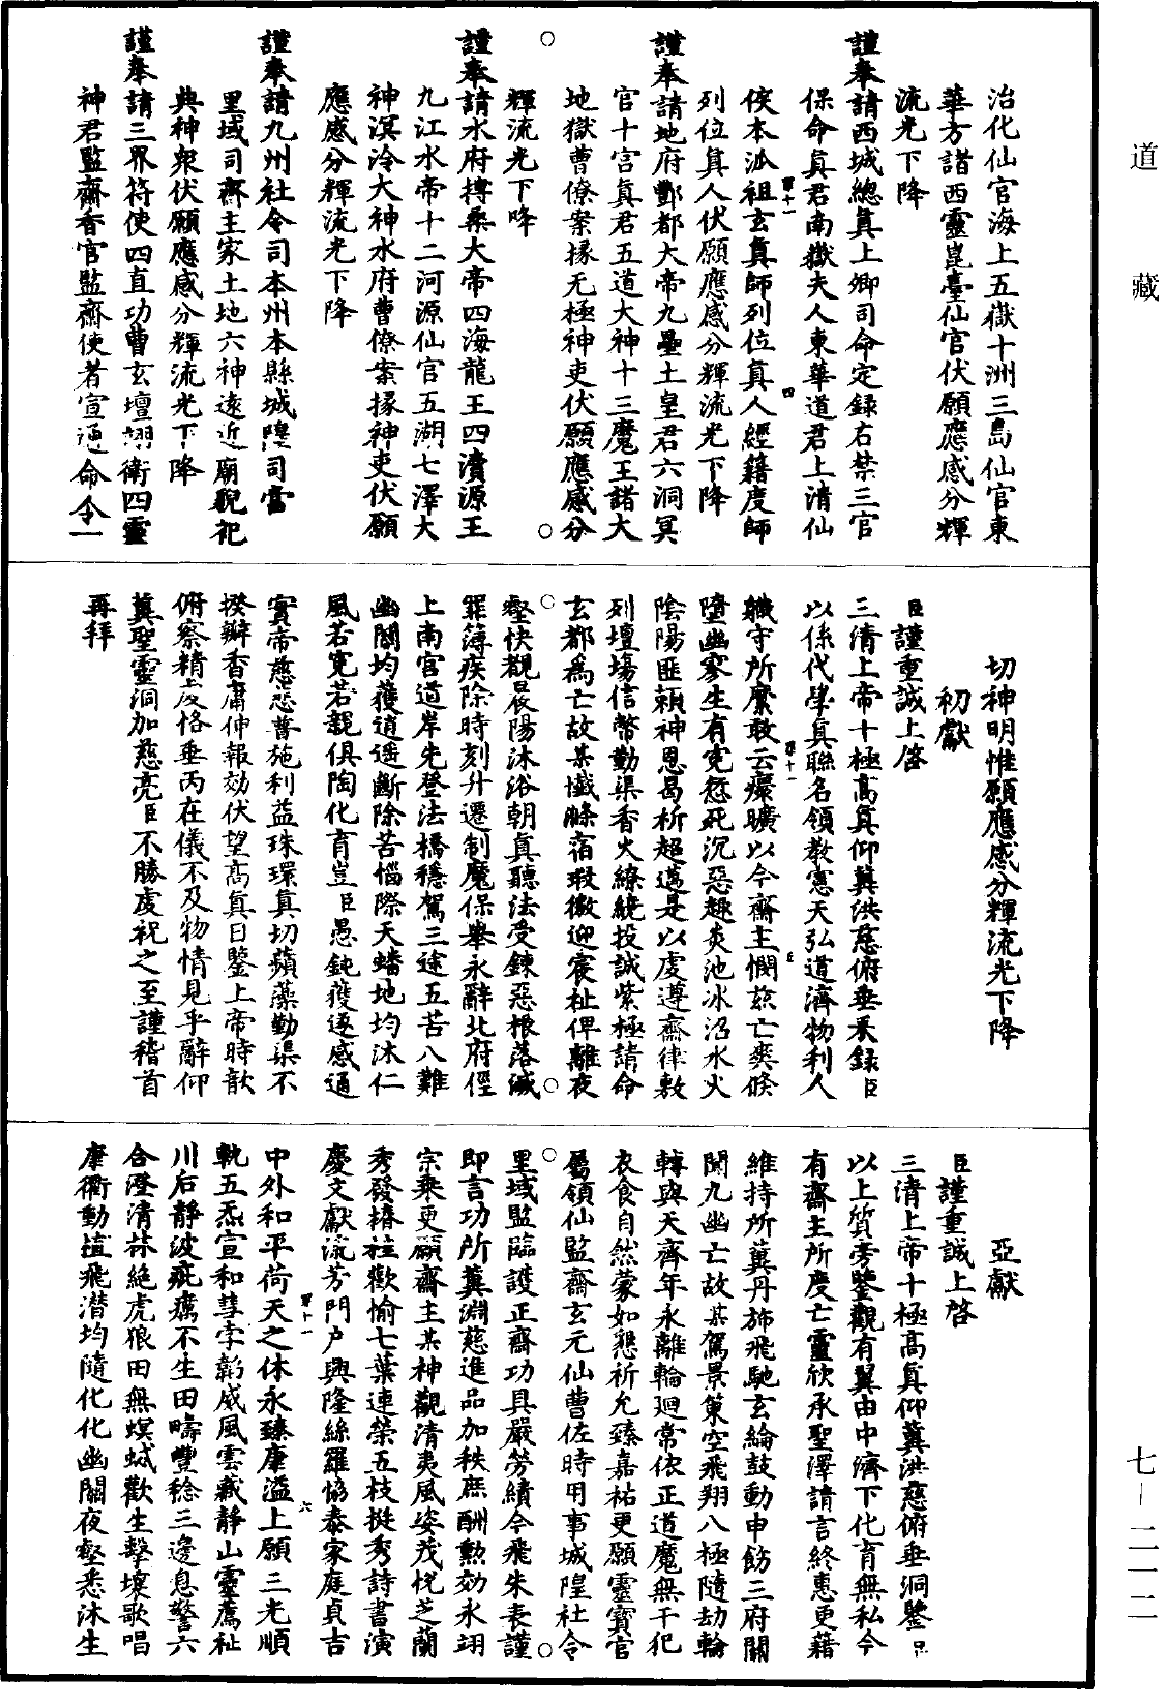 道藏
治化仙官海上五嶽十洲三島仙官東
華方諸西靈崑臺仙官伏願應感分輝
流光下降
謹奉請西城總真上卿司命定録右禁三官
保命真君南嶽夫人東華道君上清仙
侯本派祖玄真師列位真人經籍度師
列位真人伏願應感分輝流光下降
謹奉請地府酆都大帝九壘土皇君六洞冥
官十宮真君五道大神十三魔王諸大
地獄曹僚案掾无極神吏伏願應感分
輝流光下降
謹奉請水府摶桑大帝四海龍王四瀆源王
九江水帝十二河源仙官五湖七澤大
神溟泠大神水府曹僚案掾神吏伏願
應感分輝流光下降
謹奉請九州社令司本州本縣城隍司當
里域司齋主家土地六神遠近廟貌祀
典神衆伏願應感分輝流光下降
謹奉請三界符使四直功曹玄壇翊衛四靈
神君監齋香官監齋使者宣通命令一
切神明惟願應感分輝流光下降
初獻
臣謹重誠上啓
三清上帝十極高真仰冀洪慈俯垂采録臣
以係代學真聯名領教憲天弘道濟物利人
職守所縻敢云癏曠以今齋主憫兹亡爽倏
墮幽寥生有寃愆死沉惡趣炎池冰沼水火
陰陽匪賴神恩曷祈超邁是以虔遵齋律敷
列壇場信幣勤渠香火繚繞投誠紫極請命
玄都為亡故某懺滌宿瑕徼迎宸祉俾離夜
壑快觀晨陽沐浴朝真聽法受鍊惡根落滅
罪簿疾除時刻升遷制魔保舉永辭北府徑
上南宮道岸先登法橋穩駕三途五苦八難
幽關均獲逍遥斷除苦惱際天蟠地均沐仁
風若寃若親俱陶化育豈臣愚鈍獲遂感通
實帝慈悲普施利益珠環真切蘋藻勤渠不
揆瓣香庸伸報効伏望高真日鑒上帝時歆
俯察精虔恪垂丙在儀不及物情見乎辭仰
冀聖靈洞加慈亮臣不勝虔祝之至謹稽首
再拜
亞獻
臣謹重誠上啓
三清上帝十極高真仰冀洪慈俯垂洞鑒臣
以上質旁鑒觀有翼由中濟下化育無私今
有齋主所度亡靈欣承聖澤請言終惠更藉
維持所冀丹旆飛馳玄綸鼓動申飭三府關
開九幽亡故某駕景策空飛翔八極隨劫輪
轉與天齊年永離輪迴常依正道魔無干犯
衣食自然蒙如懇祈允臻嘉祐更願靈寶官
屬領仙監齋玄元仙曹佐時用事城隍社令
里域監臨護正齋功具嚴勞績今飛朱表謹
即言功所冀淵慈進品加秩庶酬勲効永翊
宗乘更願齋主某神觀清夷風姿茂悦芝蘭
秀發椿桂歡愉七葉連榮五枝挺秀詩書演
慶文獻流芳門户興隆絲羅恊泰家庭貞吉
中外和平荷天之休永臻康溢上願三光順
軌五炁宣和彗孛韜威風雲藏靜山靈薦祉
川后靜波疵癘不生田疇豐稔三邊息警六
合澄清林絶虎狼田無螟蜮歡生擊壤歌唱
康衢動植飛潛均隨化化幽關夜壑悉沐生
七-二一二